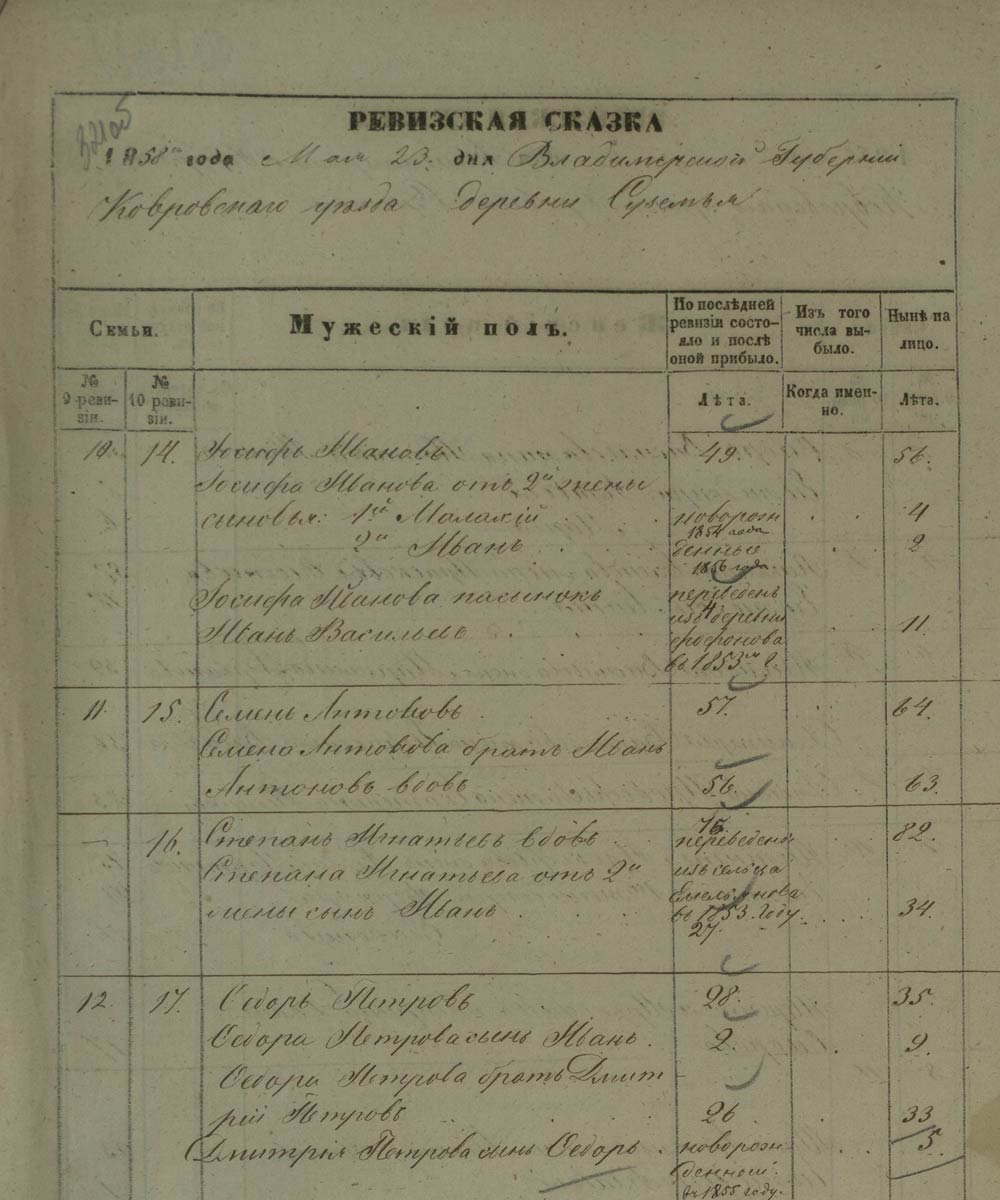 РЕВИЗСКАЯ СКАЗКА
1858го года Мая 23. дня Владимирской Губерніи
Ковровскаго уѣзда деревни Суземья
Семьи.
Мужескій полъ.
По послѣдней ревизіи состо-
яло и послѣ оной прибыло.
Изъ того числа вы-
было.
Нынѣ на лицо.
№ 9 реви-
зіи.
№ 10 реви-
зіи.
Лѣта.
Когда имен-
но.
Лѣта.
10. 14. Іосифъ Ивановъ 49. 56.
Іосифа Иванова отъ 2й жены
сыновья: 1й Малахій новорож 4
1854 года
2й Иванъ денные 2
1856 года
Іосифа Иванова пасынокъ переведенъ
4
изъ деревни
Иванъ Васильевъ фофонова 11.
въ 1853м г.
11. 15. Семенъ Антоновъ 57. 64.
Семена Антонова братъ Иванъ
Антоновъ вдовъ 56. 63.
75.
— 16. Степанъ Игнатьевъ вдовъ переведены 82.
Степана Игнатьева отъ 2й изъ сельца
Емельянова
жены сынъ Иванъ въ 1853. году. 34.
27.
12. 17. Ѳедоръ Петровъ 28. 35.
Ѳедора Петрова сынъ Иванъ. 2. 9.
Ѳедора Петрова братъ Дмит
рій Петровъ 26 33
Дмитрія Петрова сынъ Ѳедоръ. новорож 5.
денной.
въ 1855 году.